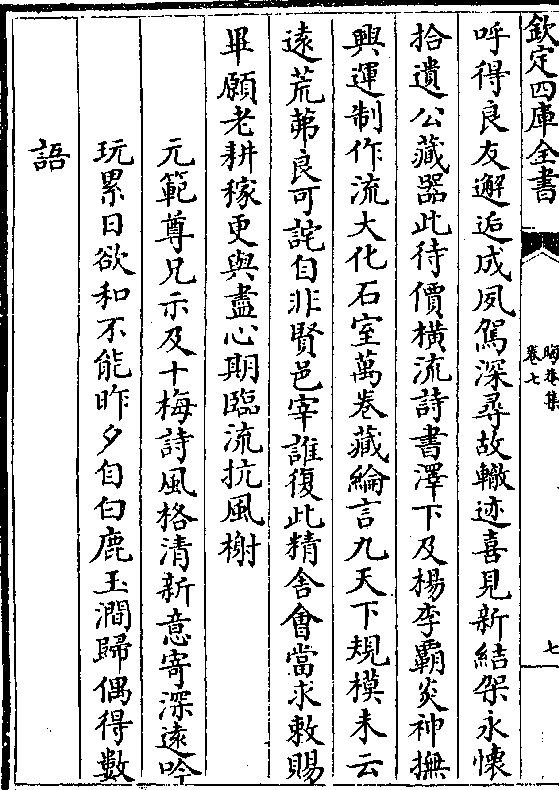 欽定四庫全書
晦菴集
卷七
七
呼得良友邂逅成夙駕深尋故轍迹喜見新結架永懷
拾遺公藏器此待價橫流詩書澤下及楊李霸炎神撫
興運制作流大化石室萬卷藏綸言九天下規模未云
遠荒茀良可詫自非賢邑宰誰復此精舍會當求敕賜
畢願老耕稼更與盡心期臨流抗風榭
元範尊兄示及十梅詩風格清新意寄深遠吟
玩累日欲和不能昨夕自白鹿玉澗歸偶得數
語